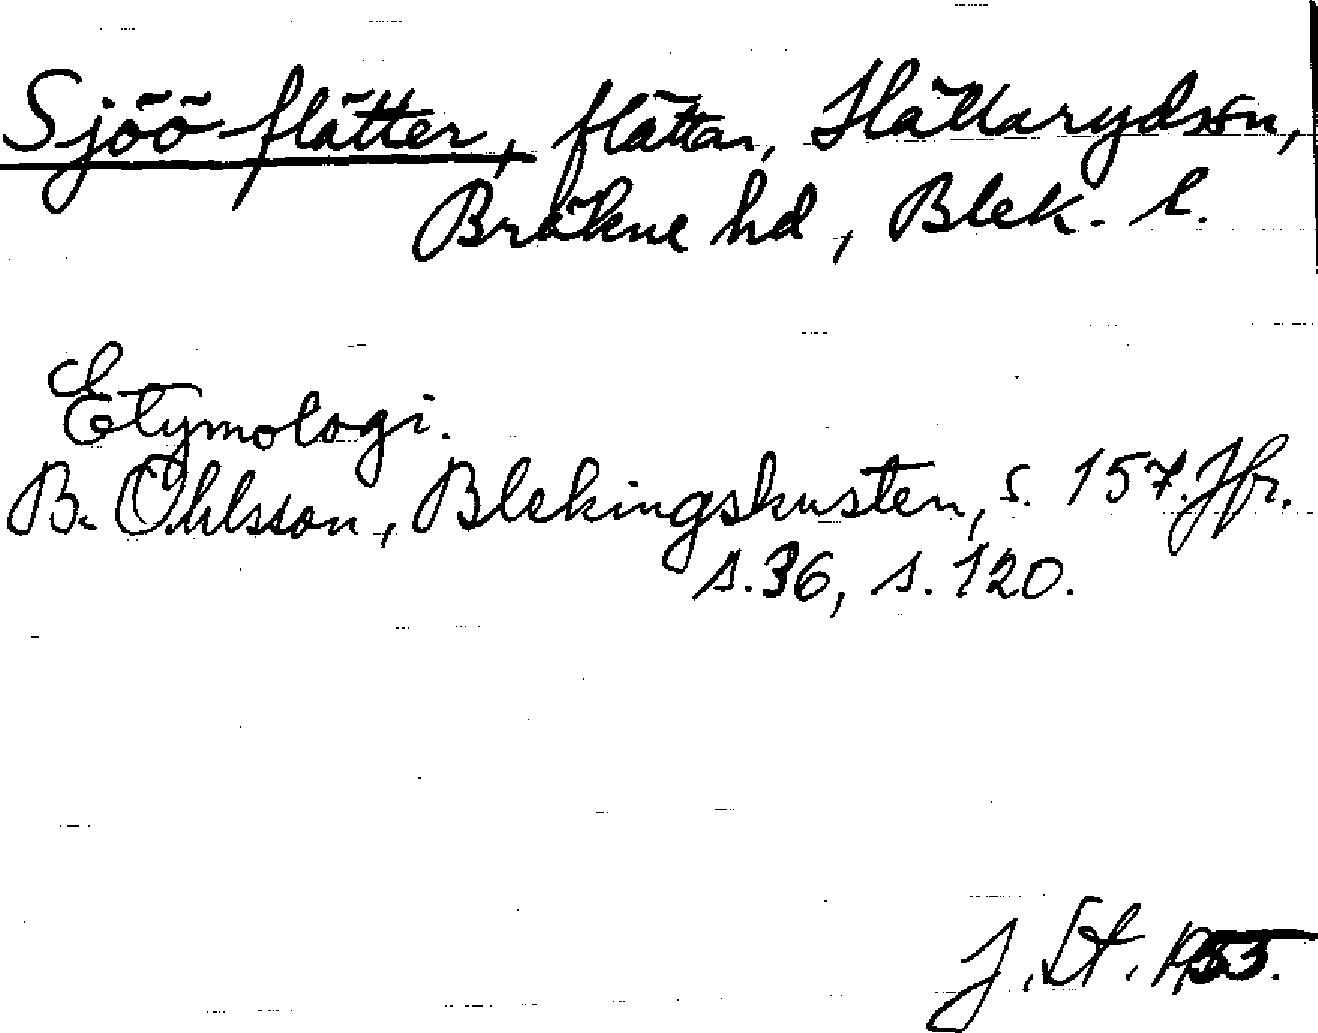 Sjöö-flätter, flättar, Hällarydsön,
Bräkne hd, Blek. l.
Etymologi.
B. Ohlsson, Blekingskusten, s. 157. Jfr.
s. 36, s. 120.
J. St. 1953.